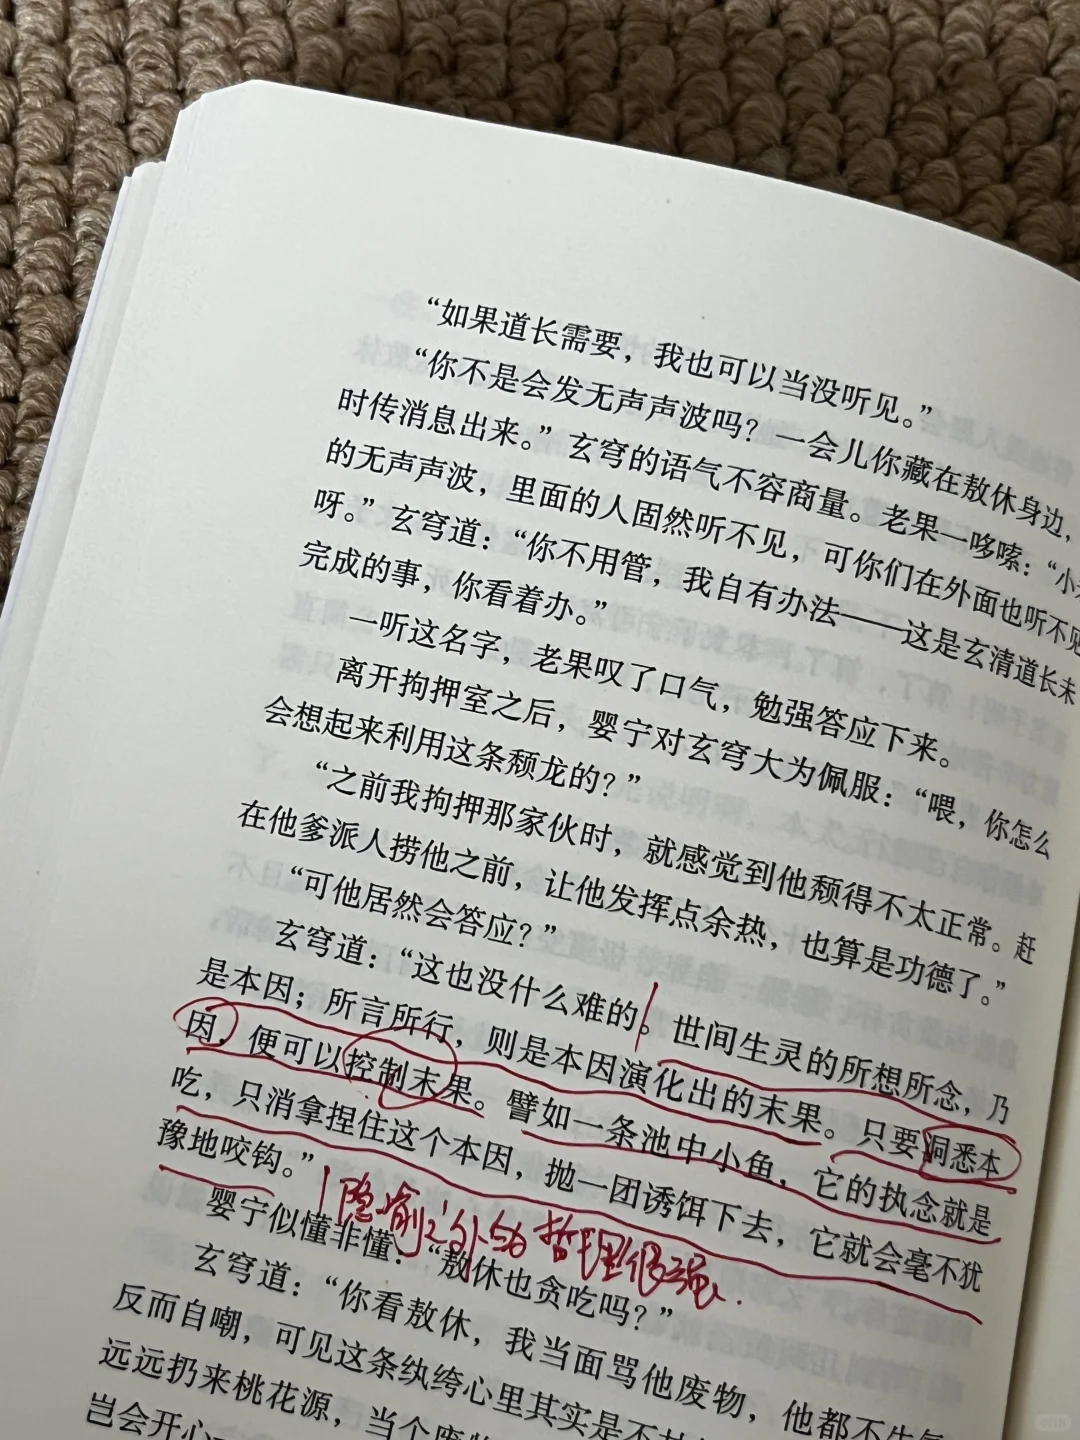 “如果道长需要，我也可以当没听见。”
“你不是会发无声声波吗？一会儿你藏在敖休身边，
时传消息出来。”玄穹的语气不容商量。老果一哆嗦：“小
的无声声波，里面的人固然听不见，可你们在外面也听不见
呀。”玄穹道：“你不用管，我自有办法——这是玄清道长未
完成的事，你看着办。”
一听这名字，老果叹了口气，勉强答应下来。
离开拘押室之后，婴宁对玄穹大为佩服：“喂，你怎么
会想起来利用这条颓龙的？”
“之前我拘押那家伙时，就感觉到他颓得不太正常。赶
在他爹派人捞他之前，让他发挥点余热，也算是功德了。”
“可他居然会答应？”
玄穹道：“这也没什么难的。世间生灵的所想所念，乃
是本因；所言所行，则是本因演化出的末果。只要洞悉本
因，便可以控制末果。譬如一条池中小鱼，它的执念就是
吃，只消拿捏住这个本因，抛一团诱饵下去，它就会毫不犹
豫地咬钩。”
隐喻之外的哲理很强.
婴宁似懂非懂：“敖休也贪吃吗？”
玄穹道：“你看敖休，我当面骂他废物，他都不生气
反而自嘲，可见这条纨绔心里其实是不
远远扔来桃花源，当个废
岂会开心